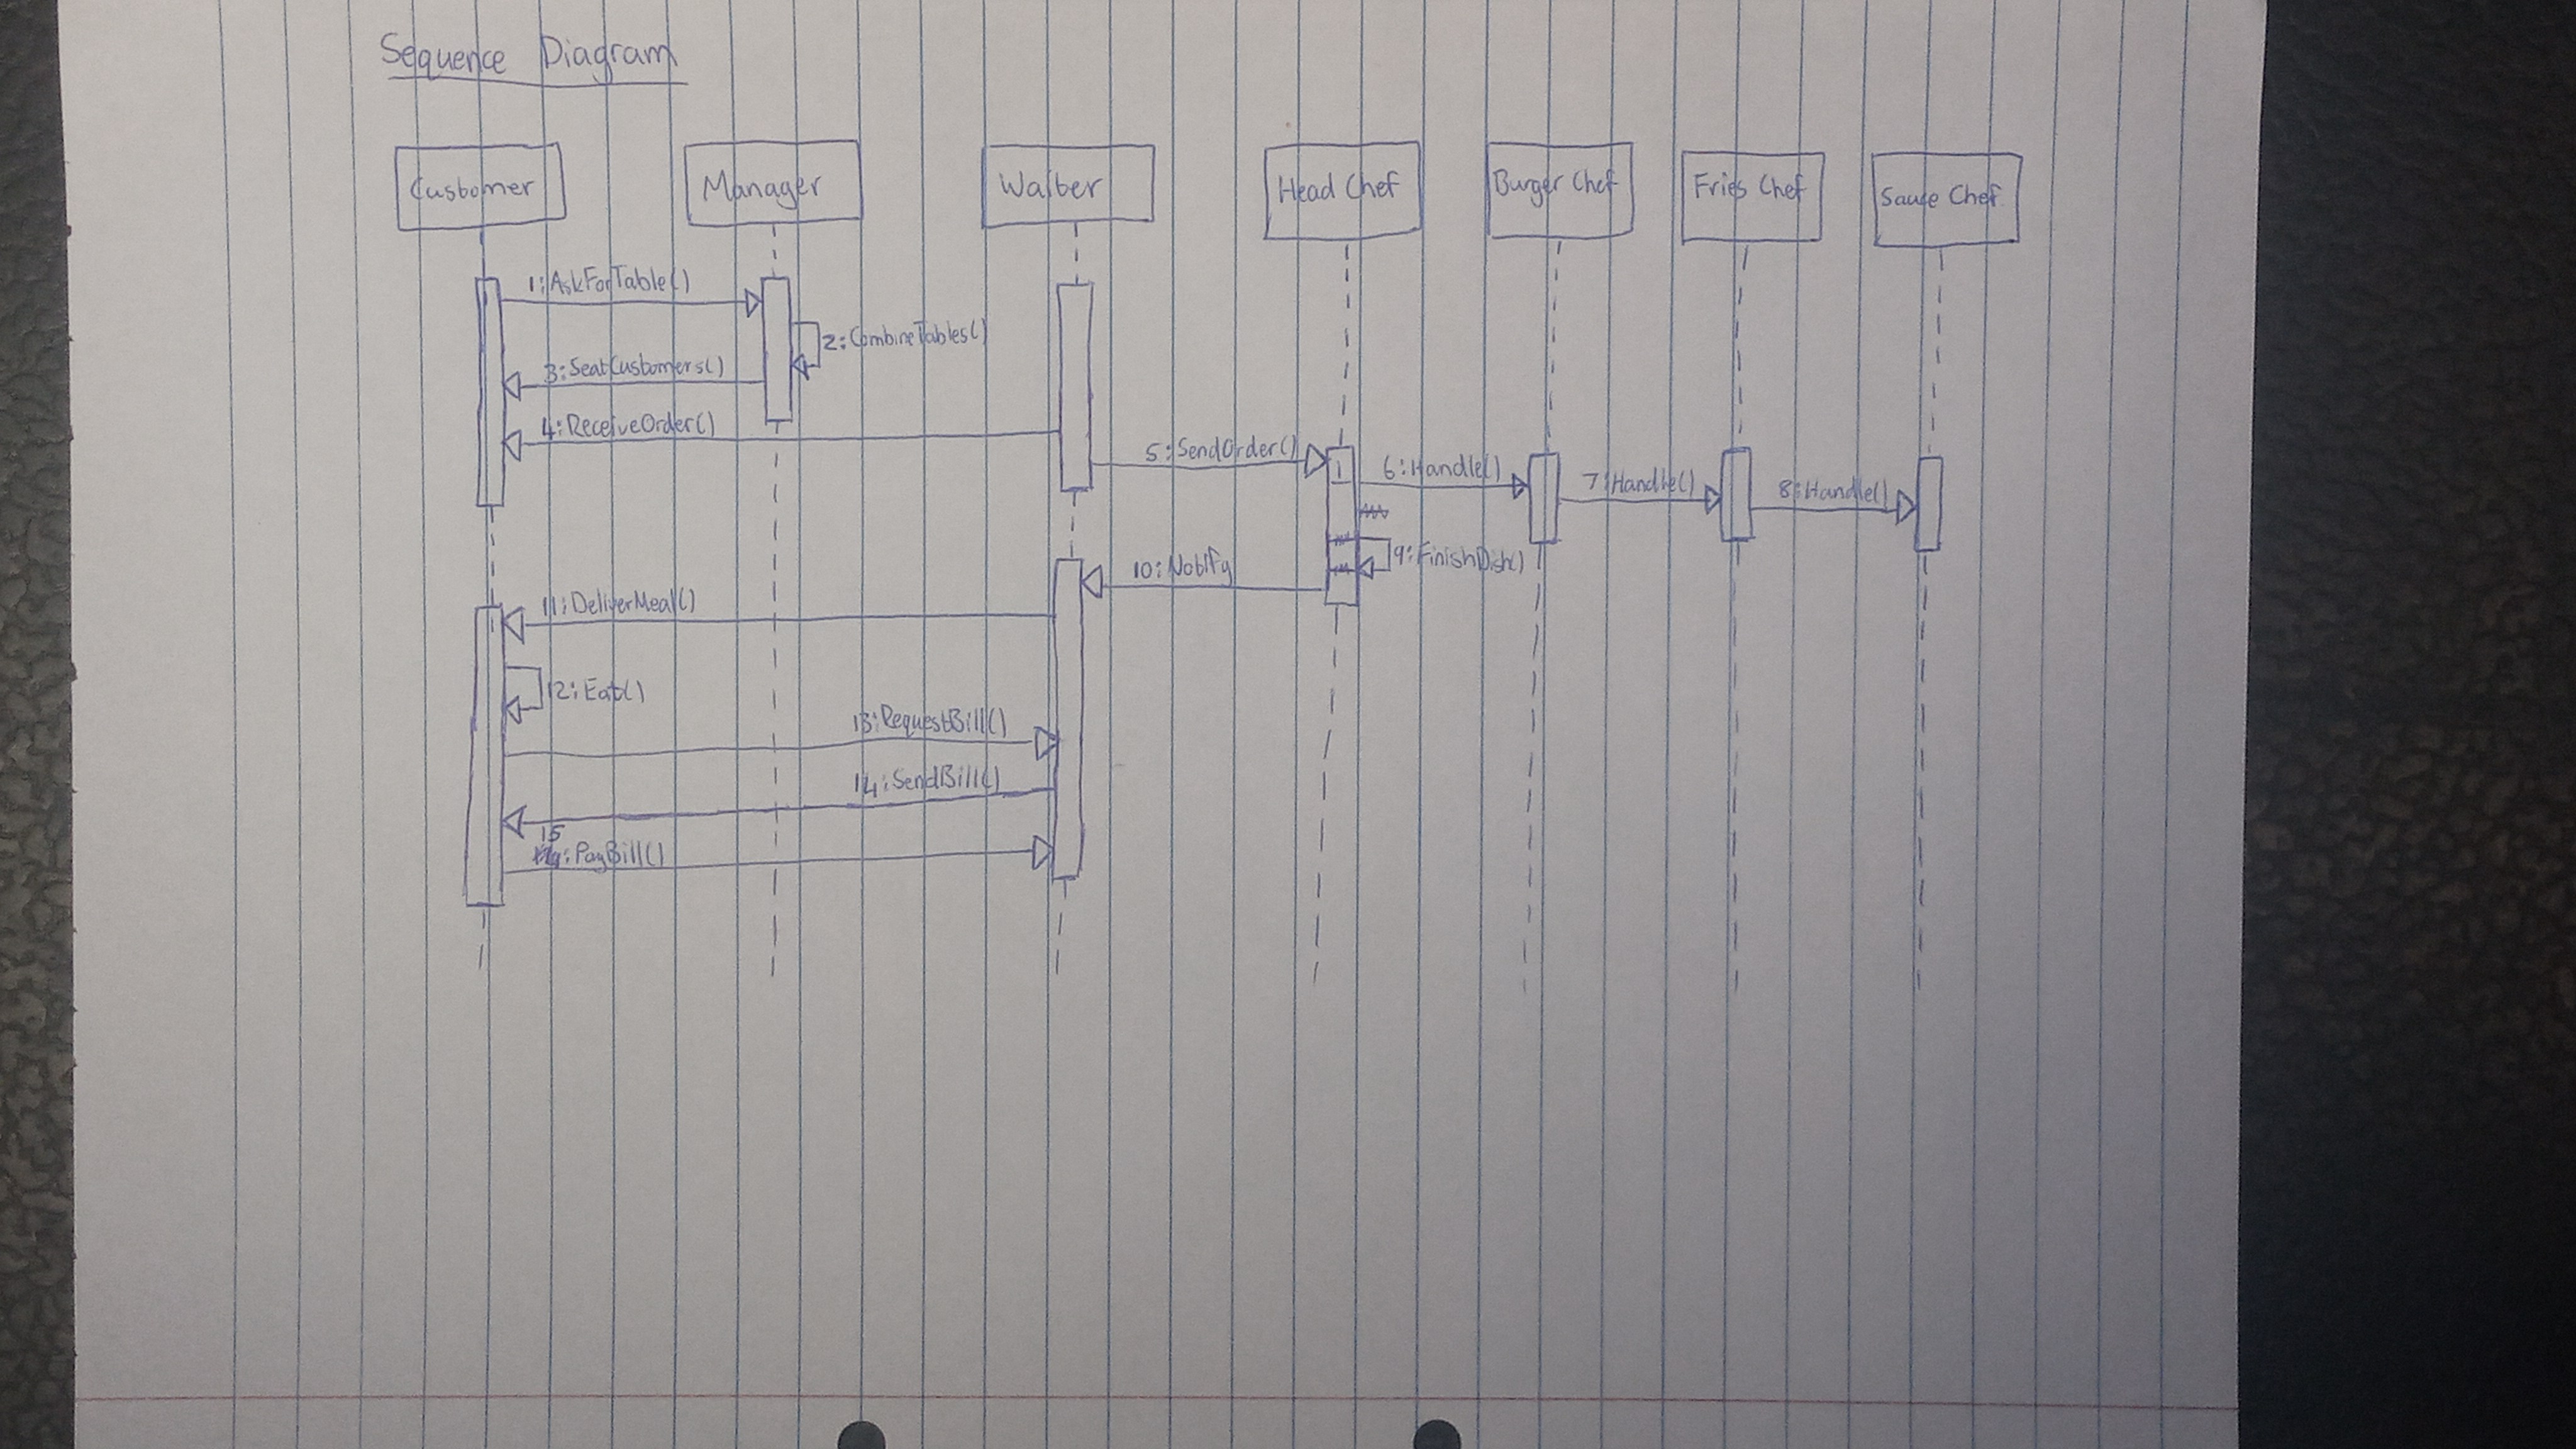 Sequence Diagram
Customer
Manager
Waiter
Head Chef
Burger Chef
Fries Chef
Sauce Chef
1:AskForTable()
2:CombineTables()
3:SeatCustomers()
4:ReceiveOrder()
5:SendOrder()
6:Handle()
7:Handle()
8:Handle()
9:FinishDish()
10:Notify
11:DeliverMeal()
12:Eat()
13:RequestBill()
14:SendBill()
15:PayBill()